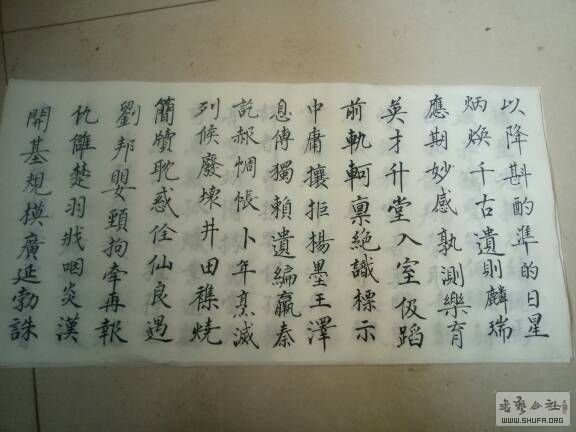 以降斟酌準的日星
炳煥千古遺則麟瑞
應期妙感孰測樂育
英才升堂入室伋蹈
前軌軻稟絕識標示
中庸攘拒揚墨王澤
息傳獨賴遺編嬴秦
訖赧惆悵卜年烹滅
列侯廢壞井田襍燒
簡牘耽惑佺仙良遇
劉邦嬰頸拘牽再報
仇讎楚羽戕咽炎漢
開基規模廣延勃誅
書藝公社
WWW.SHUFA.ORG